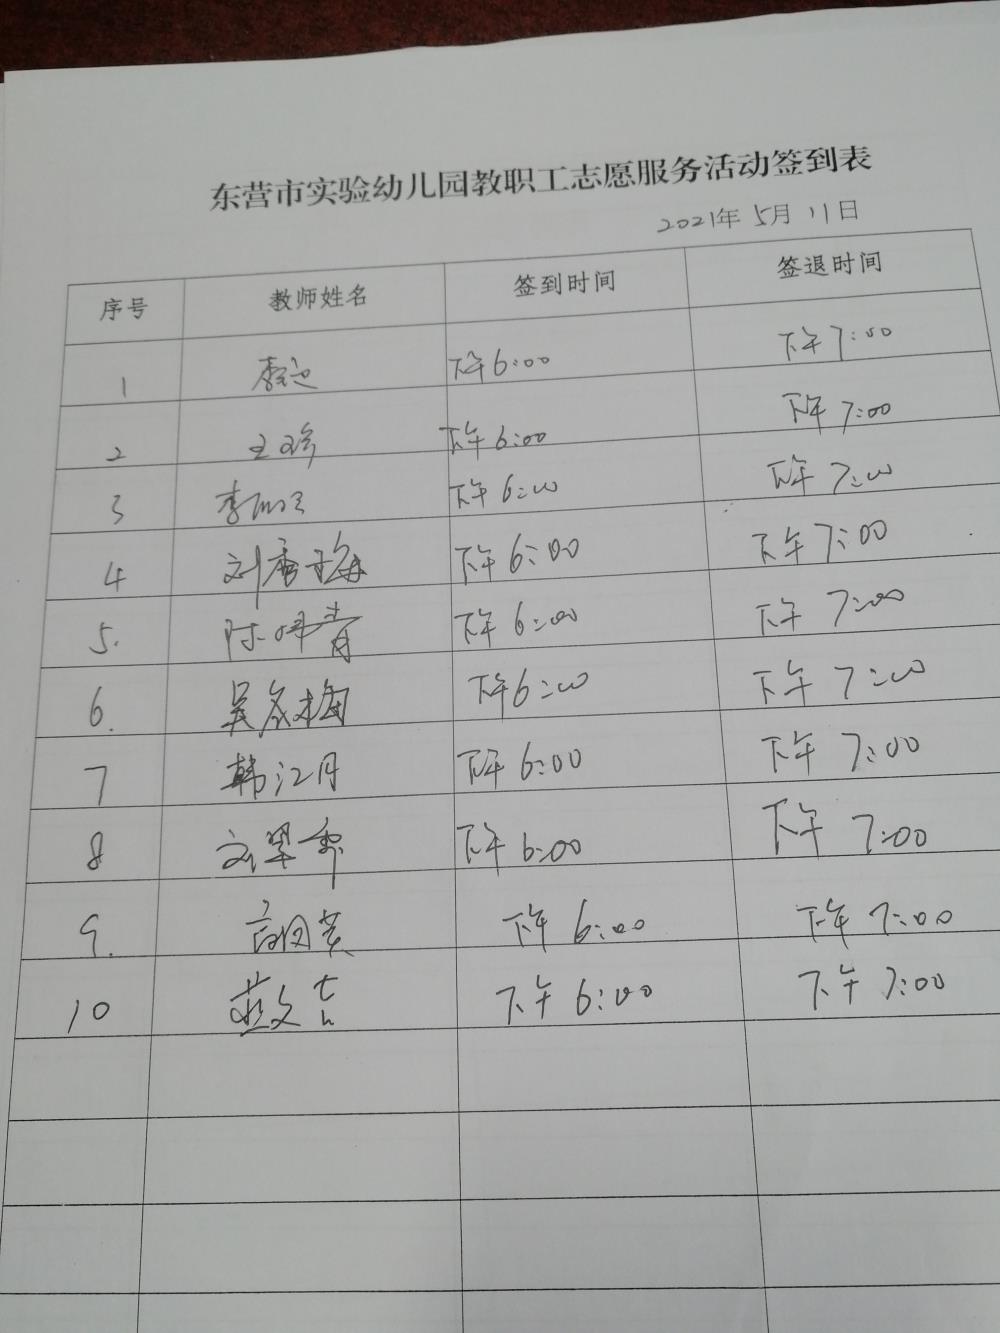 东营市实验幼儿园教职工志愿服务活动签到表
2021年 5月 11日
序号 教师姓名 签到时间 签退时间
1 下午6:00 下午7:00
2 王珍 下午6:00 下午7:00
3 李 下午6:00 下午7:00
4 刘秀梅 下午6:00 下午7:00
5. 陈 青 下午6:00 下午7:00
6. 吴 梅 下午6:00 下午7:00
7 韩江月 下午6:00 下午7:00
8 刘翠 下午6:00 下午7:00
9. 下午6:00 下午7:00
10 下午6:00 下午7:00